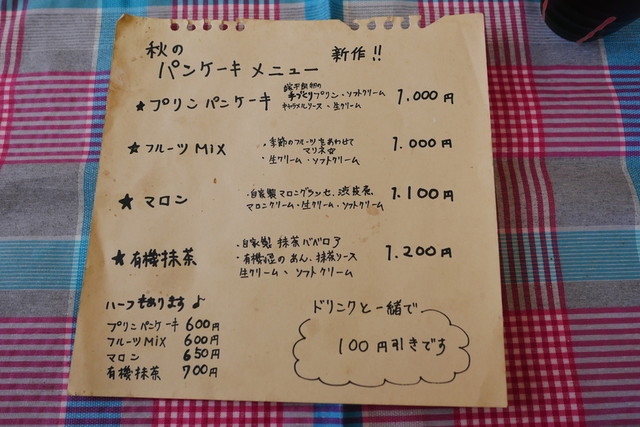 秋の
パンケーキ メニュー 新作!!
★プリンパンケーキ 手づくりプリン・ソフトクリーム 1.000円
キャラメルソース・生クリーム
★フルーツMiX ・季節のフルーツをあわせて 1.000円
マリネ☆
・生クリーム・ソフトクリーム
★マロン ・自家製マロングランセ、渋皮煮、 1.100円
マロンクリーム・生クリーム・ソフトクリーム
★有機抹茶 ・自家製 抹茶ババロア 1.200円
・有機豆のあん、抹茶ソース
生クリーム、ソフトクリーム
ハーフもあります♪
プリンパンケーキ 600円
フルーツMiX 600円
マロン 650円
有機抹茶 700円
ドリンクと一緒で
100円引きです